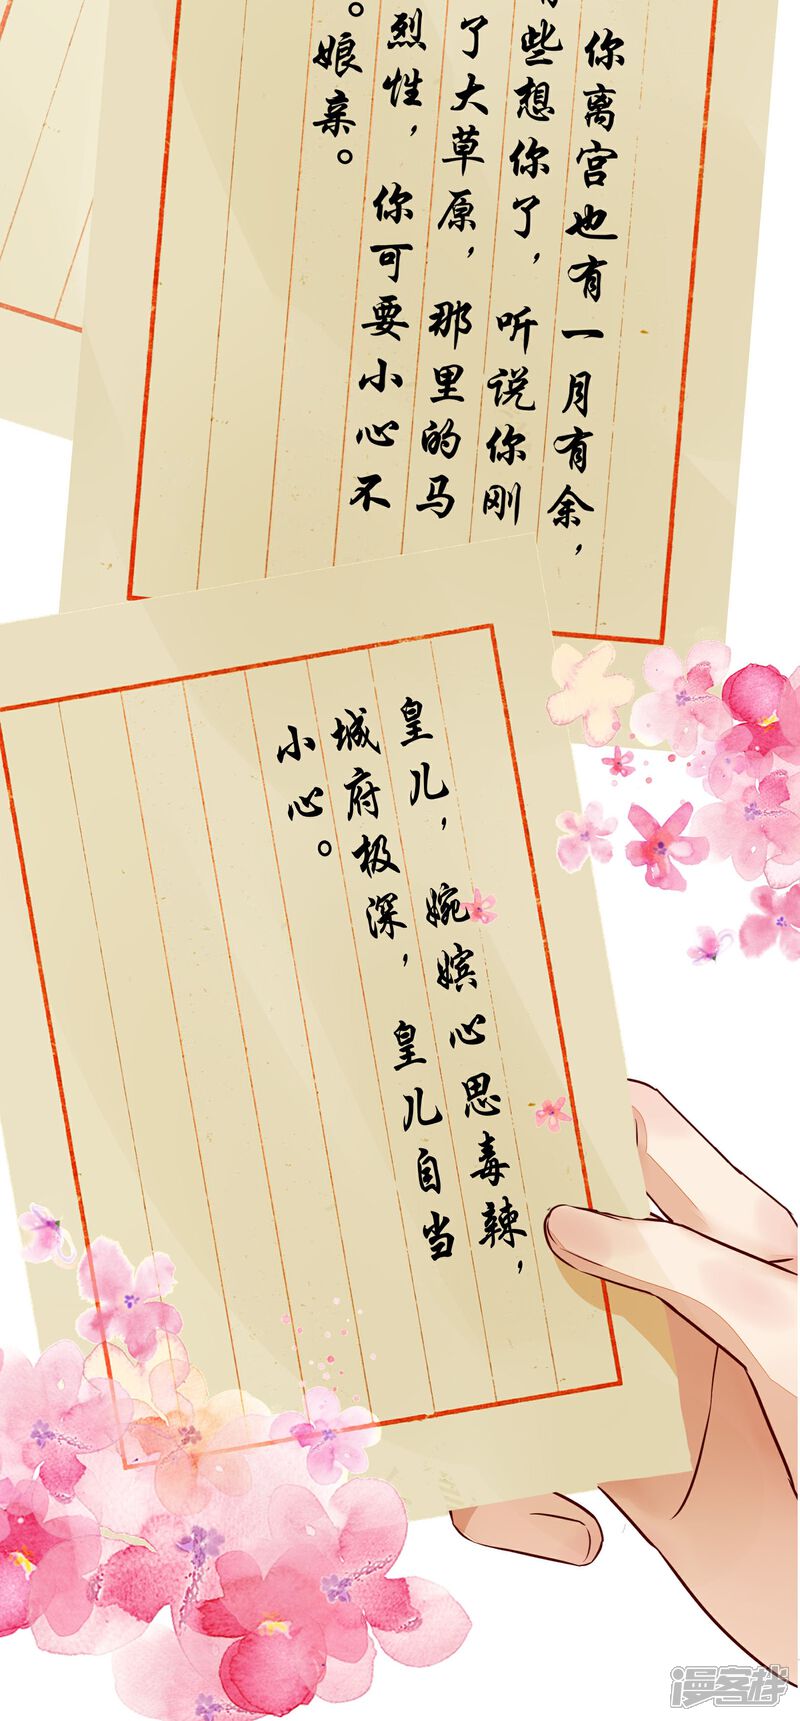 你离宫也有一月有余，
些想你了，听说你刚
了大草原，那里的马
烈性，你可要小心不
。娘亲。
皇儿，婉嫔心思毒辣，
城府极深，皇儿自当
小心。
漫客栈